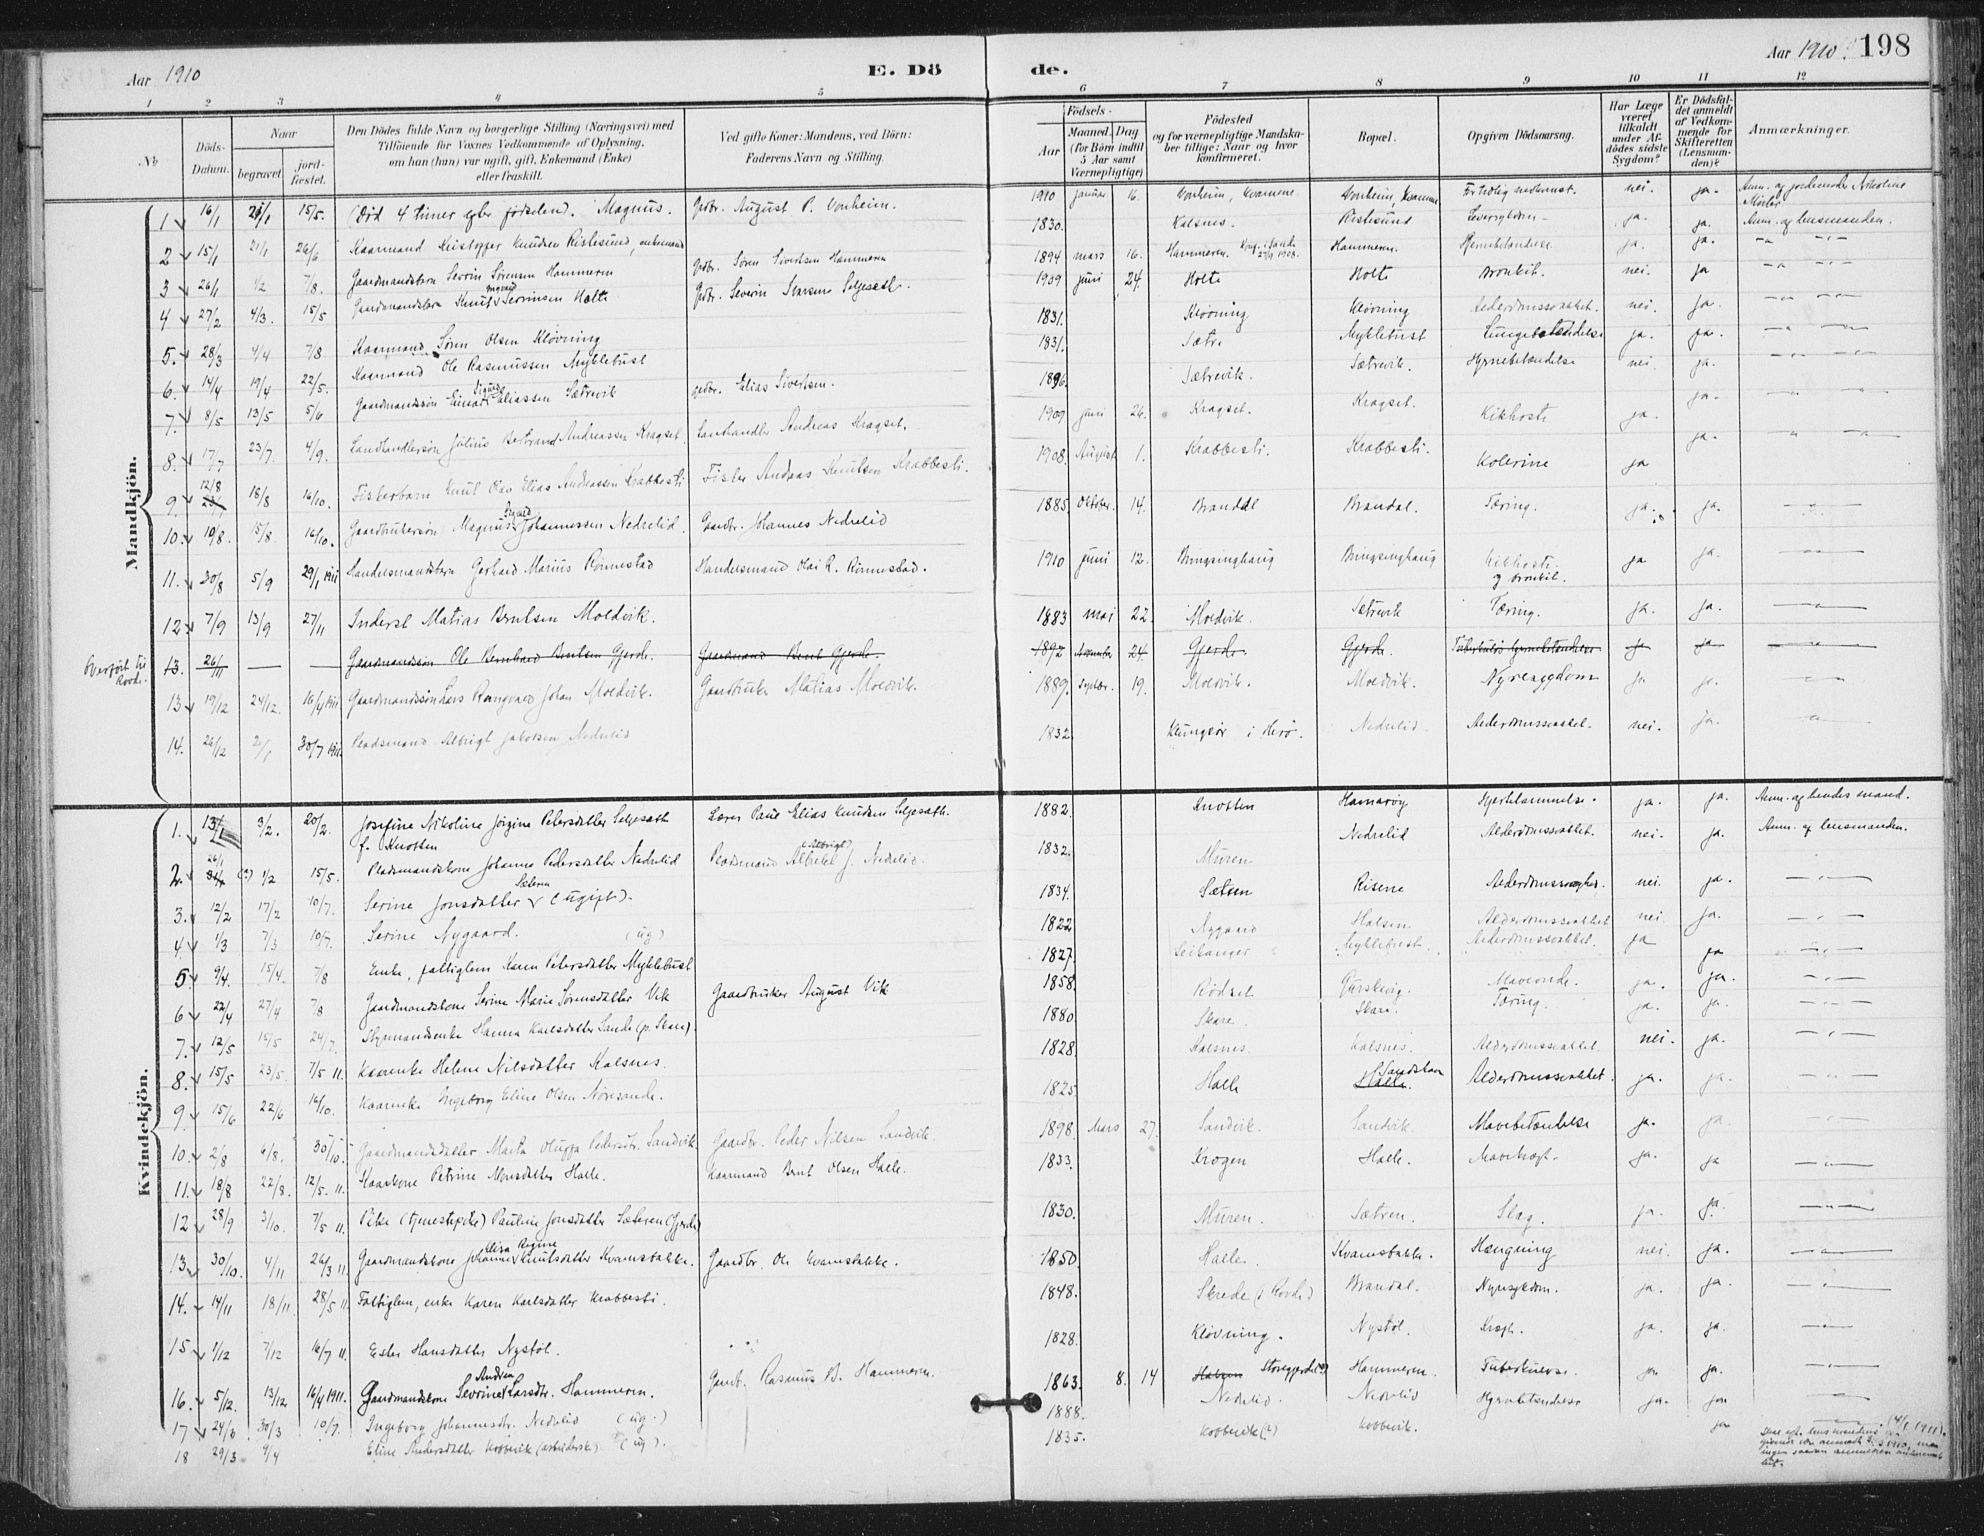 Aar 1910
E. Dö
de.
Aar 1910. 198
1 2 3 4 5 6 7 8 9 10 11 12
No
Döds-Datum.
Naar
begravet.
jordfæstet.
Den Dödes fulde Navn og borgerlige Stilling (Næringsvei) med
Tilföiende for Voxnes Vedkommende af Oplysning,
om han (hun) var ugift, gift, Enkemand (Enke)
eller fraskilt.
Ved gifte Koner: Mandens, ved Börn:
Faderens Navn og Stilling.
Födsels-
Aar
Maaned. Dag
(for Börn indtil
5 Aar samt
Værnepligtige)
Födested
og for værnepligtige Mandskaber tillige: Naar og hvor
konfirmeret.
Bopæl.
Opgiven Dödsaarsag.
Har Læge været tilkaldt under Afdödes sidste Sygdom?
Er Dödsfaldet anmeldt af Vedkommende for Skifteretten (Lensmanden)?
Anmærkninger.
Mandkjön.
1 16/1 21/1 15/5. (Död 4 timer efter födselen). Magnus. Gdbr. August P. Vonheim. 1910 januar 16. Vonheim, Kvamene. Vonheim, Kvamene For tidlig nedkomst. nei. ja.
2 15/1 21/1 26/6 Kaarmand Kristoffer Knudsen Ristesund, enkemand 1830. Kalsnes. Ristesund Leversygdom ja. ja. Anm. af lensmanden.
3 26/1 1/2 7/8. Gaardmandsbarn Severin Sörensen Hammeren Gdbr. Sören Sivertsen Hammeren 1894 mars 16. Hammeren. Hammeren. Hjernebetændelse. ja. ja.
4 27/2 4/3. 15/5 Gaardmandsbarn Knut Ingvald Severinsen Holte Gdbr. Severin Iversen Seljeseth. 1909 juni 24. Holte Holte Bronkit. nei. ja
5. 28/3 4/4 7/8 Kaarmand Sören Olsen Klövning 1831. Klövning Klövning Alderdomssvakket. nei. ja.
6. 14/4 19/4 22/5. Kaarmand Ole Rasmussen Myklebust 1831. Sætre Myklebust Lungebetændelse ja. ja.
7. 8/5 13/5 5/6 Gaardmandssön Einar Sigurd Eliassen Sætrevik gdbr. Elias Sivertsen. 1896. Sætrevik. Sætrevik. Hjernebetændelse nei. ja.
8. 17/7 23/7. 4/9. Landhandlersön Julius Bertrand Andreassen Kragset. Landhandler Andreas Kragset. 1909 juni 26. Kragset. Kragset. Kikhoste ja. ja.
9. 12/8 18/8 16/10. Fiskerbarn Knut Olav Elias Andreassen Krabbesti Fisker Andreas Knutsen Krabbesti. 1908. August 1. Krabbesti. Krabbesti. Kolerine ja ja.
10. 10/8. 15/8 16/10. Gaardbrukersön Magnus Sigvard Johannessen Nedrelid Gaardbr. Johannes Nedrelid 1885 Oktober. 14. Brandal Brandal. Tæring. ja. ja.
11. 30/8 5/9 29/1 1911 Handelsmandsbarn Gerhard Marius Rönnestad Handelsmand Olai R. Rönnestad. 1910 juni 12. Bringsinghaug Bringsinghaug Kikhoste og bronkit. ja ja.
12 7/9 13/9 27/11 Inderst Matias Berntsen Moldvik. 1883 mai 22. Moldvik. Sætrevik Tæring. ja. ja.
Overfört til Rovde. 13. 26/11 — — Gaardmandssön Ole Bernhard Berntsen Gjerde. Gaardmand Bernt Gjerde. 1892 November 24. Gjerde. Gjerde. Tuberkulös hjernebetændelse ja ja
13 19/12 24/12. 16/4 1911. Gaardmandssön Lars Rangvald Johan Moldvik. Gaardbruker Matias Moldvik. 1889. Septbr. 19. Moldvik. Moldvik. Nyresygdom ja ja.
14. 26/12 2/1 30/7 1911. Pladsmand Albrigt Jakobsen Nedrelid 1832. Klungsör i Herö. Nedrelid. Alderdomssvakket. nei. ja.
Kvindekjön.
1. 13/1 3/2. 20/2. Josefine Nikoline Jörgine Petersdatter Seljeseth f. Knotten Lærer Paul Elias Knudsen Seljeseth. 1882. Knotten Hamaröy Hjertelammelse. ja. ja. Anm. af hendes mand.
2. 26/1 (?) 1/2 15/5. Pladsmandskone Johanne Pedersdatter Nedrelid Pladsmand Albrekt (Albrigt) J. Nedrelid. 1832. Muren Nedrelid Alderdomssvakket. nei. ja. Anm. af lensmanden.
3. 12/2 17/2 10/7. Serine Jonsdatter Sæteren (ugift). 1834. Sætren Risene Alderdomssvaghed. nei. ja.
4. 1/3 7/3 10/7. Serine Nygaard. (ug) 1822 Nygaard Halsen Alderdomssvakket nei. ja.
5 9/4. 15/4. 7/8 Enke, fattiglem Karen Petersdatter Myklebust 1827. Leikanger Myklebust. Alderdomssvakket. ja ja
6 22/4 27/4 7/8 Gaardmandskone Serine Marie Sörensdatter Vik Gaardbruker August Vik 1858. Rödset Gurskevig. Mavevonde. ja. ja.
7. 12/5 15/5 24/7. Styrmandsenke Hanna Karlsdatter Sande (p. Skare). 1880. Skare. Skare. Tæring. ja. ja.
8. 15/5 23/5. 7/5 11. Kaarenke Helene Nilsdatter Kalsnes. 1828. Kalsnes. Kalsnes. Alderdomssvakket. nei. ja.
9. 15/6 22/6 16/10. Kaarenke Ingeborg Eline Olsen Nöresande. 1825. Halle Halle. Alderdomssvakket. ja. ja.
10. 2/8 6/8. 30/10. Gaardmandsdatter Marta Oluffa Pedersdtr. Sandvik Gaardbr. Peder Nilsen Sandvik. 1898. Mars 27. Sandvik. Sandvik. Mavebetændelse ja. ja.
11. 18/8 22/8. 12/5. 11. Kaarkone Petrine Monsdatter Halle. Kaarmand Bernt Olsen Halle. 1833. Krogen Halle. Mavekræft. ja. ja
12 28/9 3/10. 7/5 11. Pike (tjenestepike) Pauline Jonsdatter Sæteren (Gjerde) 1830. Muren. Sætren. Slag. ja. ja.
13. 30/10. 4/11 26/3 11. Gaardmandskone Johanne Elisa Regine Knutsdatter Kvamsbakke. Gaardbr. Ole Kvamsbakke. 1850. Halle. Kvamsbakke. Hængning nei. ja.
14. 14/11 18/11. 28/5 11. Fattiglem, enke Karen Karlsdatter Krabbesti. 1848. Skrede (i Rovde) Brandal. Nyresykdom. ja. ja.
15 1/12 7/12 16/7 11. Ester Hansdatter Nystöl. 1828. Klövning. Nystöl. Kræft. ja. ja.
16. 5/12. 13/12 16/4 1911. Gaardmandskone Severine Andrea Larsdtr. Hammeren. Gaardbr. Rasmus B. Hammeren. 1863. 8. 14 Storegjerde(?) Hammeren. Tuberkulose. ja ja.
17 24/3 30/3 10/7. Ingeborg Johannesdtr. Nedrelid (ug.) 1888. Nedrelid. Nedrelid Hjernebetændelse ja. ja
18 29/3 4/4 Eline Andersdatter Kobbevik (arbeiderske) (ug). 1835. Kobbevik (?) Kobbevik. ja